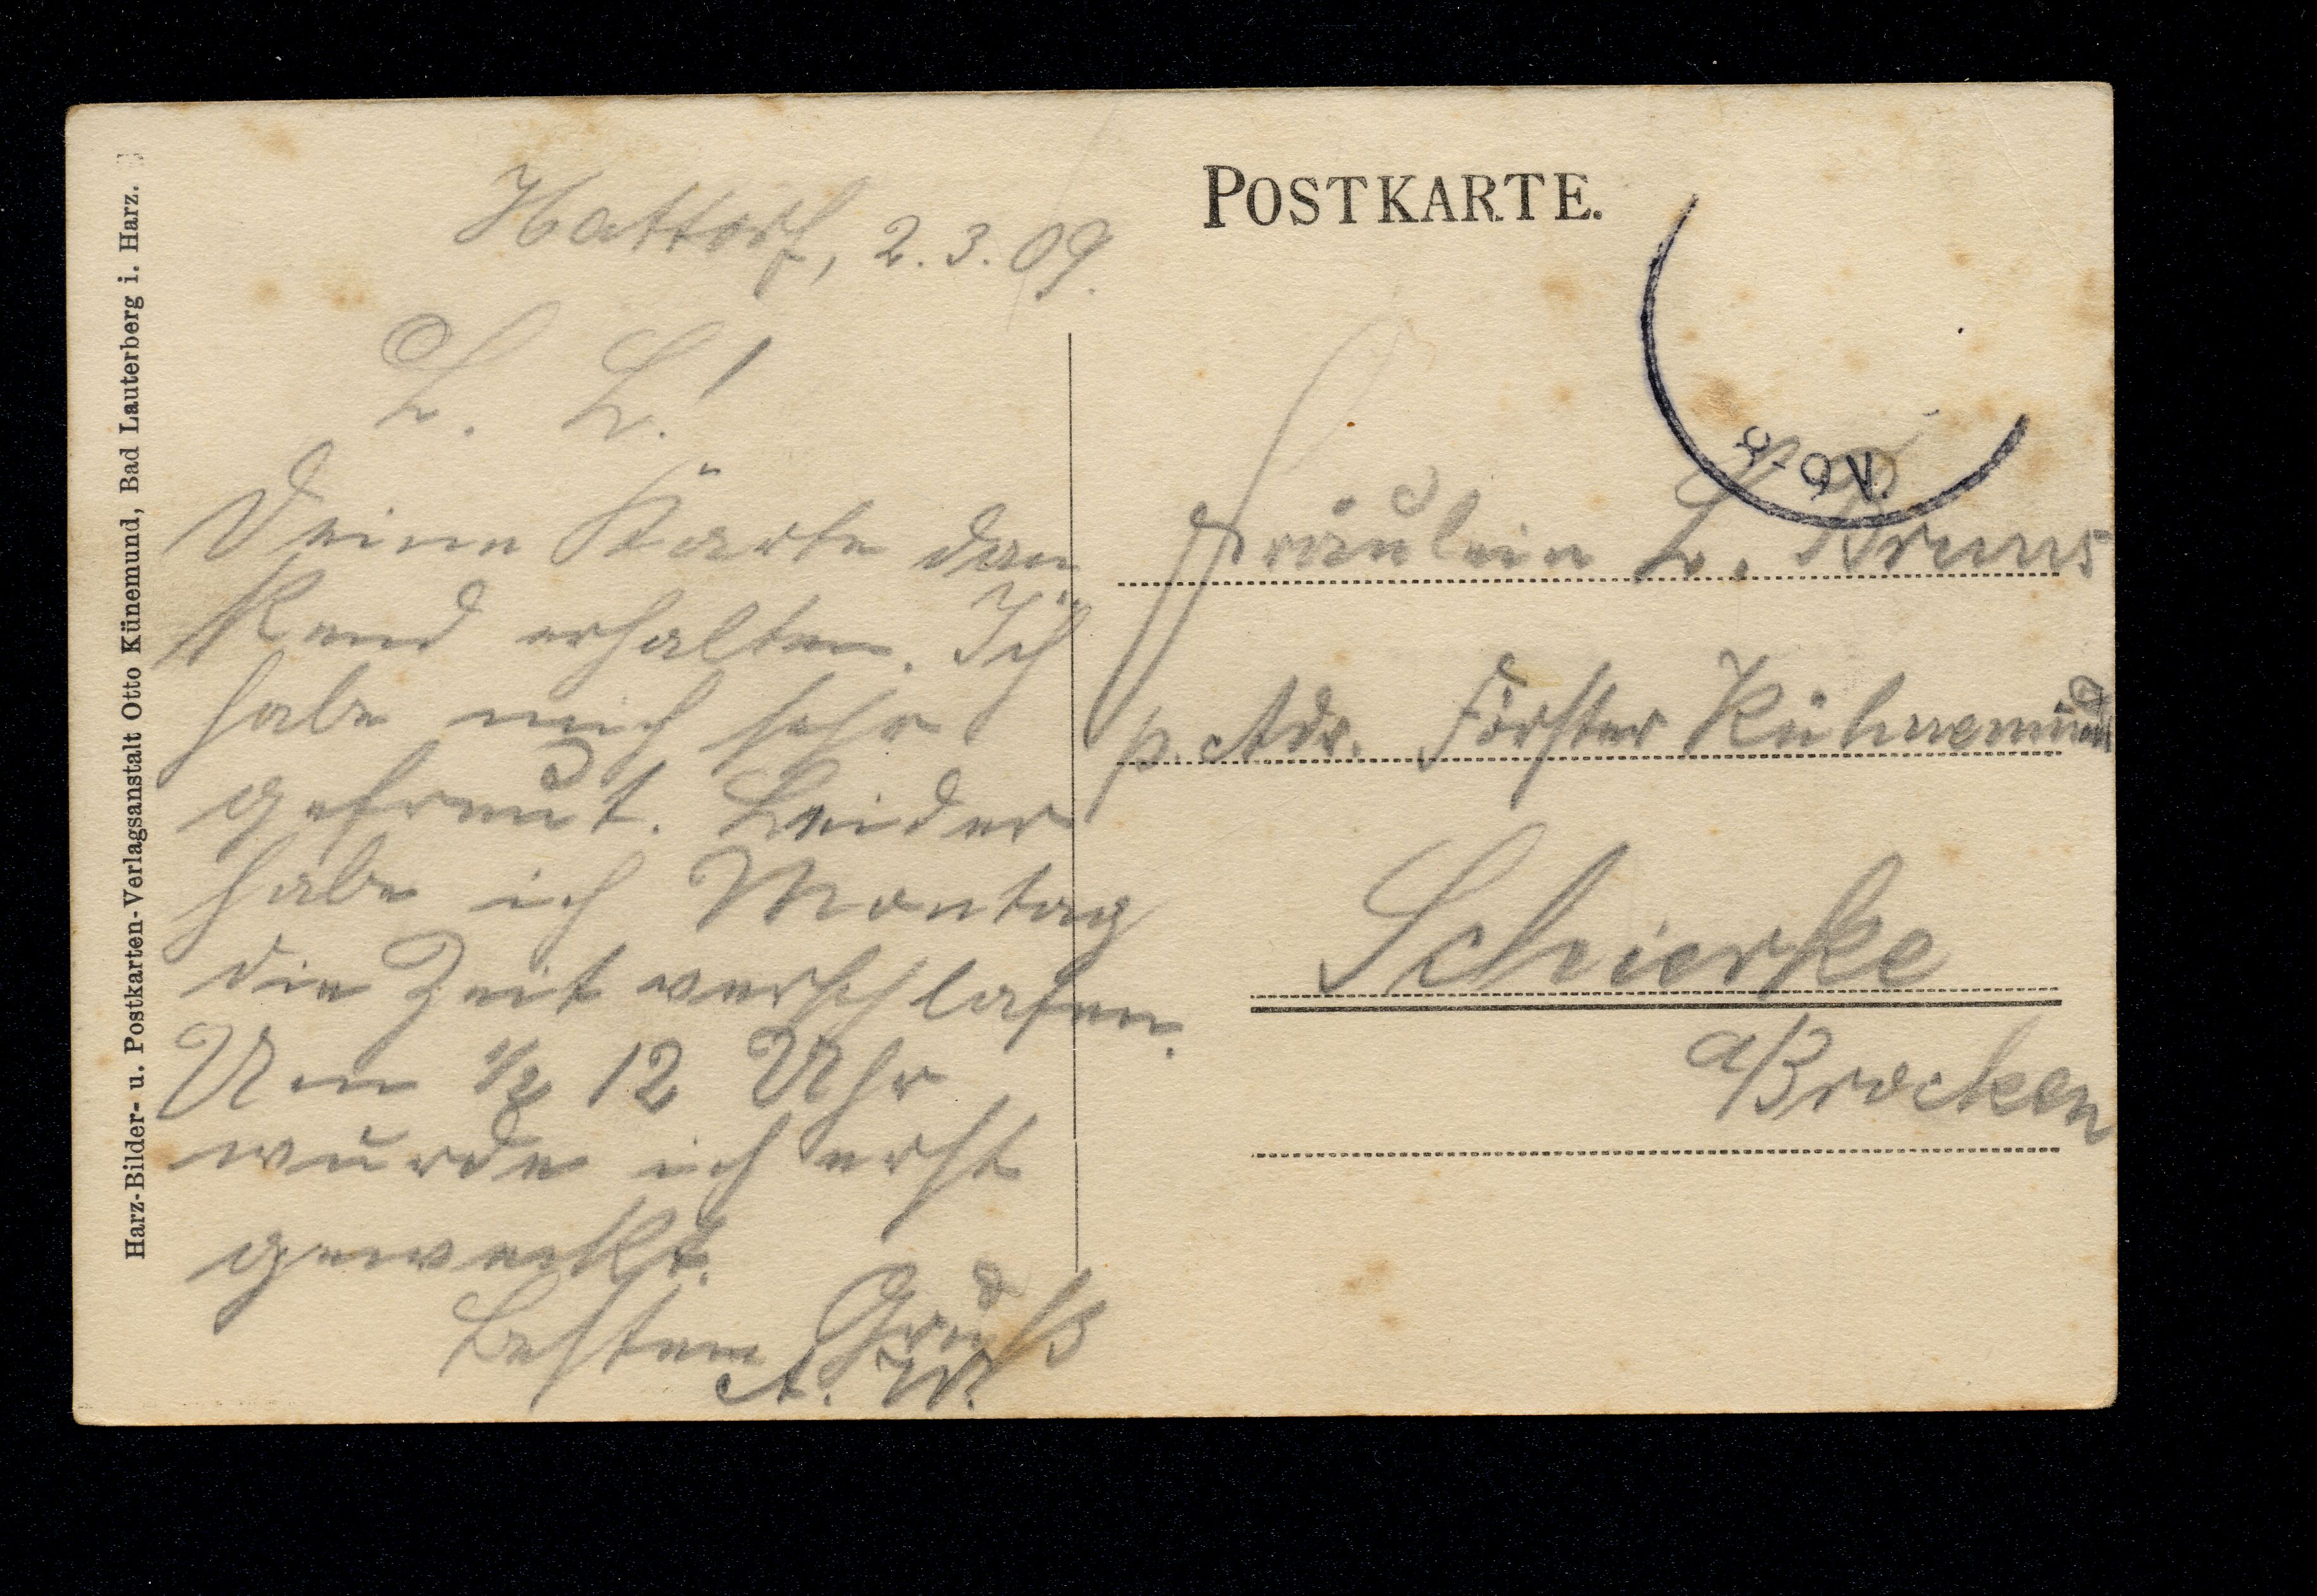 Harz-Bilder- u. Postkarten-Verlagsanstalt Otto Künemund, Bad Lauterberg i. Harz.
Hattorf, 2. 3. 09.
L. L.!
Deine Karte dan
kend erhalten. Ich
habe mich sehr
gefreut. Leider
habe ich Montag
die Zeit verschlafen.
Um 1/2 12 Uhr
wurde ich erst
geweckt.
Besten Gruß
A. W.
POSTKARTE.
Fräulein L. Bruns
p. Adr. Förster Kühnemund
Schierke
a/Brocken